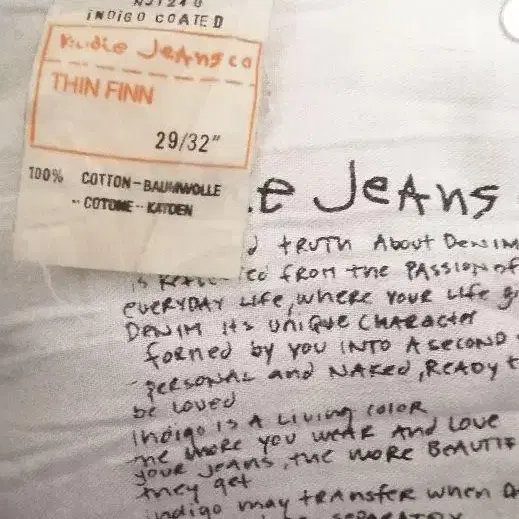 NJ1240
iNDiGO COATED
Nudie Jeans co
THIN FINN
29/32"
100% COTTON-BAUMWOLLE
-- COTONE -- KATOEN
e JeAns
tRUTH About DeNIM
is from the PASSION of
eVERYDAY Life, where YOUR Life
DeNIM its UNIQUE CHARACteR
formed by you INTO A second
personal and NAKed, ReADy t
be Loved
Indigo is A Living color
the more you weAR And Love
your Jeans, the more BEAUTIF
they get
indigo may tRANsfer when
SEPARATELY